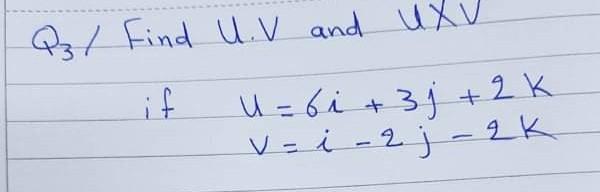 Q3/ Find U.V and UXV
if U = 6i + 3j + 2k
V = i - 2j - 2k